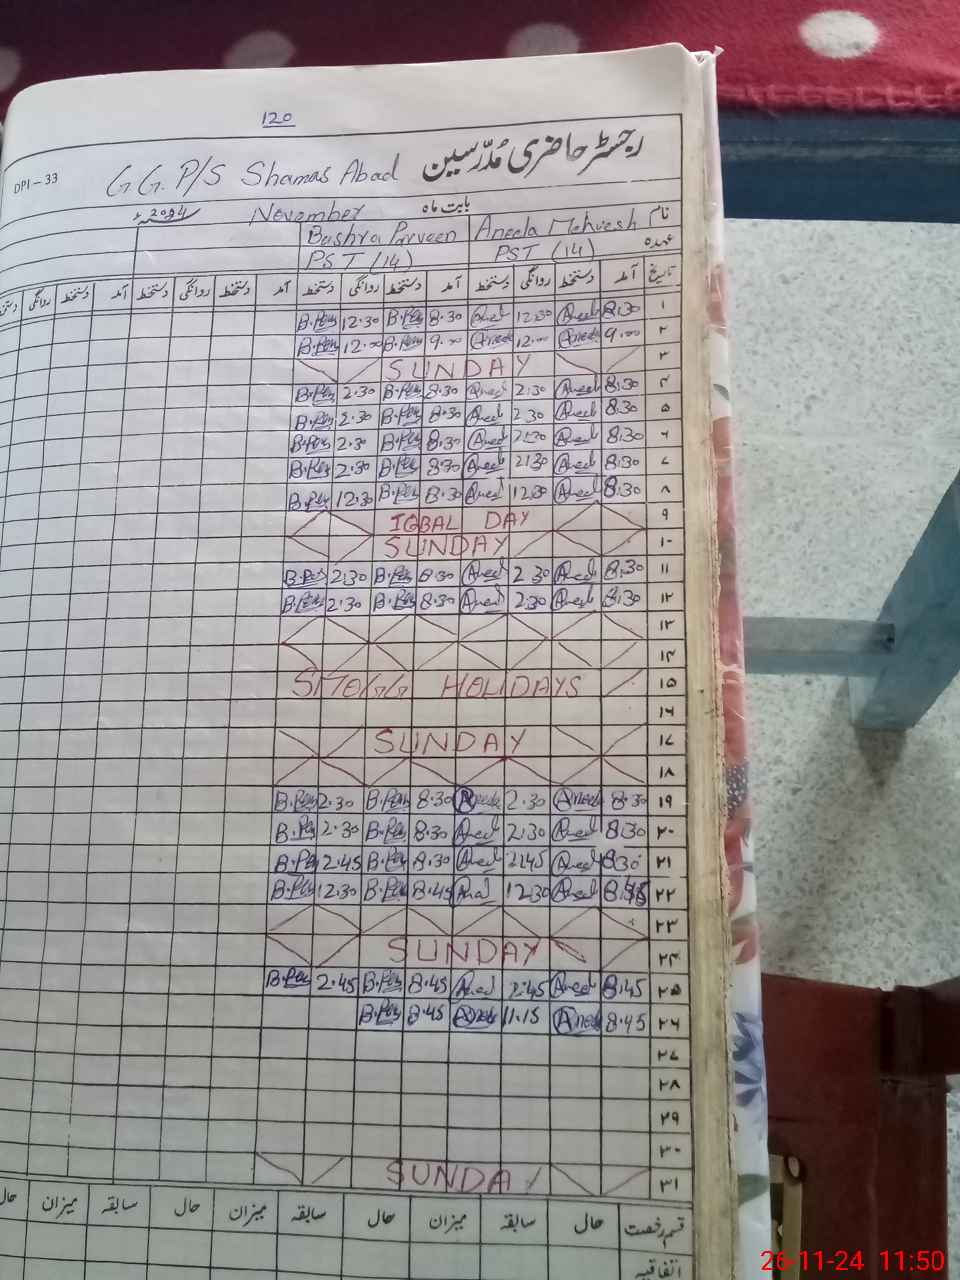 120
رجسٹر حاضری مُدرّسین
DPI-33 G G. P/S Shamas Abad
بابت ماہ November 2024ء
نام Aneela Mehvesh Bashra Parveen
عہدہ PST (14) PST (14)
تاریخ آمد دستخط روانگی دستخط آمد دستخط روانگی دستخط آمد دستخط روانگی دستخط آمد دستخط روانگی دستخط
۱ 8.30 Aneel 12.30 Aneel 8.30 B.Per 12.30 B.Per
۲ 9.00 Aneela 12.00 Aneela 9.00 B.Per 12.00 B.Per
۳ SUNDAY
۴ 8.30 Aneel 2.30 Aneel 8.30 B.Per 2.30 B.Per
۵ 8.30 Aneel 2.30 Aneel 8.30 B.Per 2.30 B.Per
۶ 8.30 Aneel 2.30 Aneel 8.30 B.Per 2.30 B.Per
۷ 8.30 Aneel 2.30 Aneel 8.30 B.Per 2.30 B.Per
۸ 8.30 Aneel 12.30 Aneel 8.30 B.Per 12.30 B.Per
۹ IQBAL DAY
۱۰ SUNDAY
۱۱ 8.30 Aneel 2.30 Aneel 8.30 B.Per 2.30 B.Per
۱۲ 8.30 Aneel 2.30 Aneel 8.30 B.Per 2.30 B.Per
۱۳
۱۴
۱۵ SMOGG HOLIDAYS
۱۶
۱۷ SUNDAY
۱۸
۱۹ 8.30 Aneela 2.30 Aneela 8.30 B.Per 2.30 B.Per
۲۰ 8.30 Aneel 2.30 Aneel 8.30 B.Per 2.30 B.Per
۲۱ 8.30 Aneel 2.45 Aneel 8.30 B.Per 2.45 B.Per
۲۲ 8.45 Aneel 12.30 Aneel 8.45 B.Per 12.30 B.Per
۲۳
۲۴ SUNDAY
۲۵ 8.45 Aneel 2.45 Aneel 8.45 B.Per 2.45 B.Per
۲۶ 8.45 Aneel 11.15 Aneel 8.45 B.Per
۲۷
۲۸
۲۹
۳۰
۳۱ SUNDAY
قسم رخصت حال سابقہ میزان حال سابقہ میزان حال سابقہ میزان حال
اتفاقیہ
26-11-24 11:50